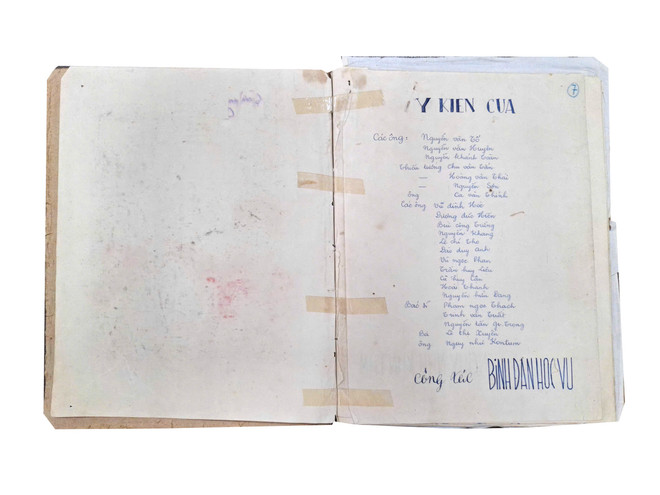 7
Y KIEN CUA
Các ông: Nguyễn văn Tố
Nguyễn văn Huyên
Nguyễn Khánh Toàn
Thiếu tướng Chu văn Tấn
— Hoàng văn Thái
— Nguyễn Sơn
Ông Ca văn Thỉnh
Các ông Vũ đình Hoè
Dương đức Hiền
Bùi công Trừng
Nguyễn Khang
Lê chí Thọ
Đào duy Anh
Vũ ngọc Phan
Trần huy Liệu
Cù huy Cận
Hoài Thanh
Nguyễn hữu Đang
Bác sĩ Phạm ngọc Thạch
Trịnh văn Tuất
Nguyễn tấn gi Trọng
Bà Lê thị Xuyến
Ông Ngụy như Kontum
Công tác BÌNH DÂN HỌC VỤ